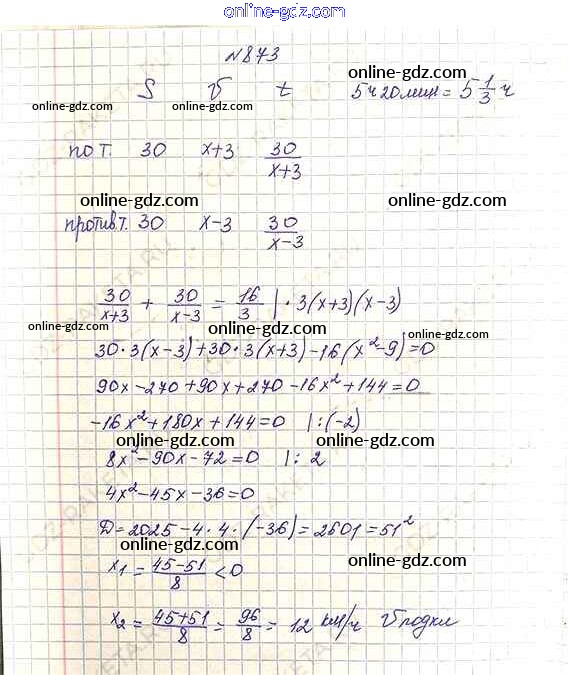 online-gdz.com
N873
S V t 5ч20мин = 5 1/3 ч
online-gdz.com
online-gdz.com online-gdz.com online-gdz.com
по т. 30 x+3 30/(x+3)
online-gdz.com
против т. 30 x-3 30/(x-3)
online-gdz.com
30/(x+3) + 30/(x-3) = 16/3 | · 3(x+3)(x-3)
online-gdz.com online-gdz.com online-gdz.com
30·3(x-3)+30·3(x+3)-16(x²-9)=0
online-gdz.com
90x-270+90x+270-16x²+144=0
-16x²+180x+144=0 |:(-2)
online-gdz.com online-gdz.com
8x²-90x-72=0 |: 2
4x²-45x-36=0
D=2025-4·4·(-36)=2601=51²
online-gdz.com online-gdz.com
x₁ = (45-51)/8 < 0
x₂ = (45+51)/8 = 96/8 = 12 км/ч V лодки